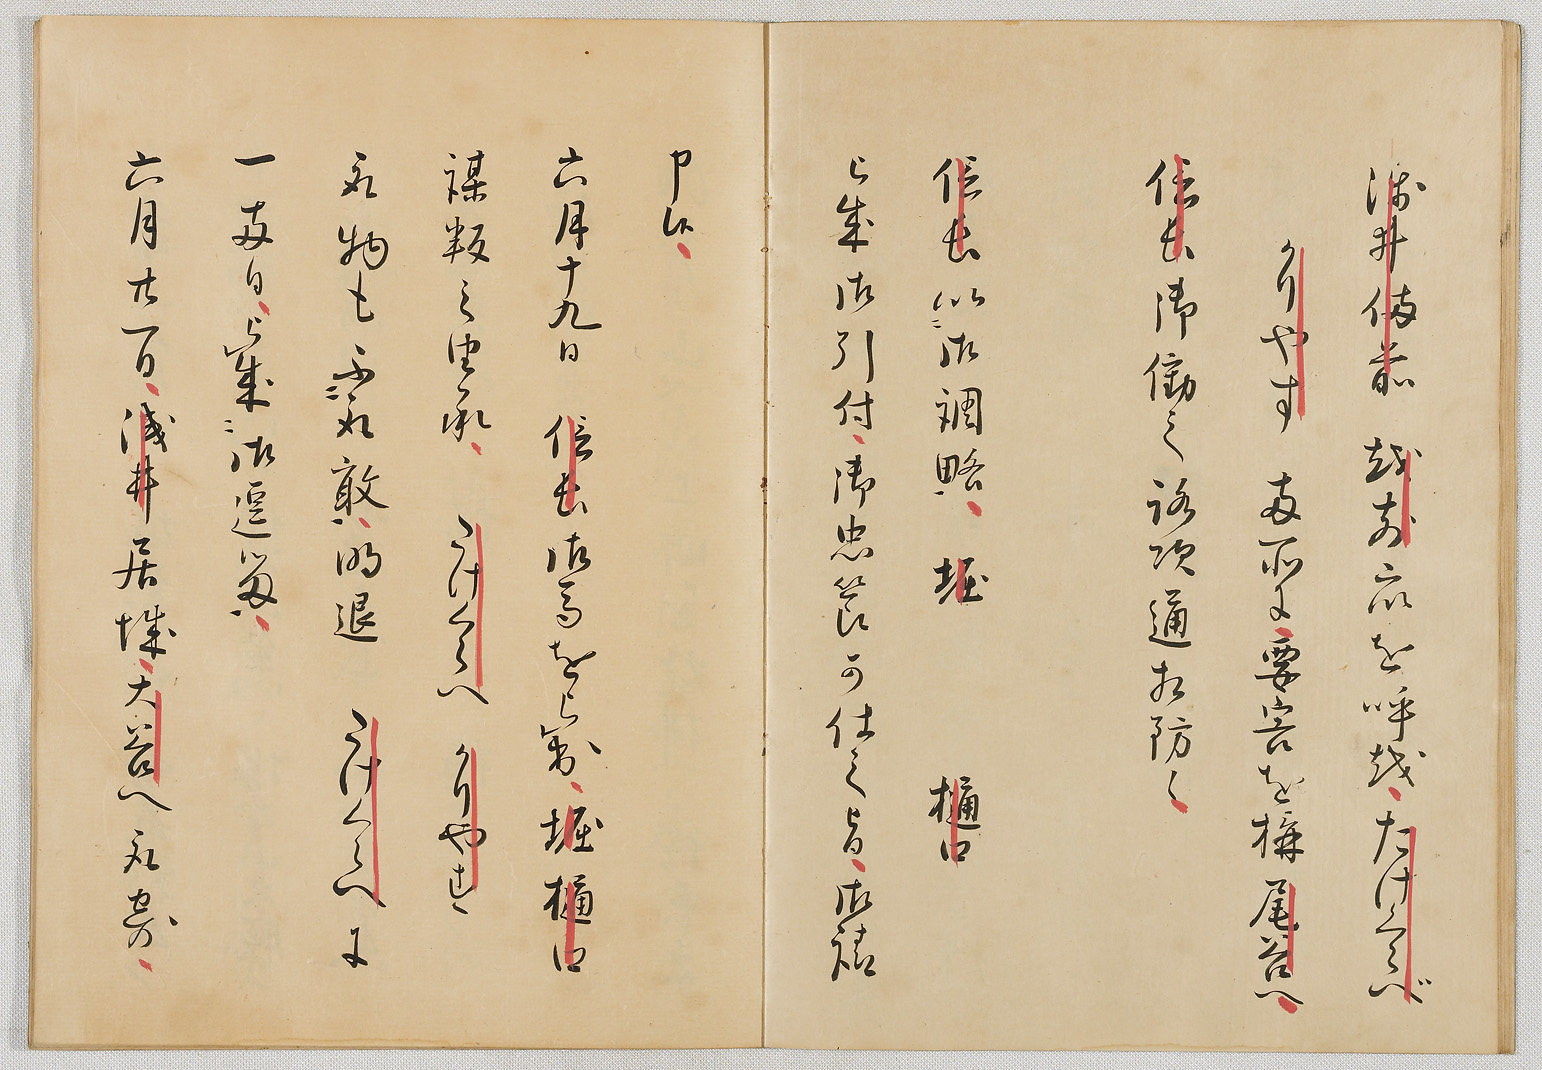 浅井備前　越前衆を呼越、たけくらべ
かりやす　両所に、要害を構　尾谷へ、
信長御働之路次通相防く、
信長以御調略、堀　樋口
被成御引付、御忠節可仕之旨、御請
申候、
六月十九日　信長御馬を被出、堀　樋口
謀叛之由承、たけくらへ　かりやす
取物も不取敢、明退　たけくらへに
一両日、被成御逗留、
六月廿一日、浅井居城、大谷へ取寄、